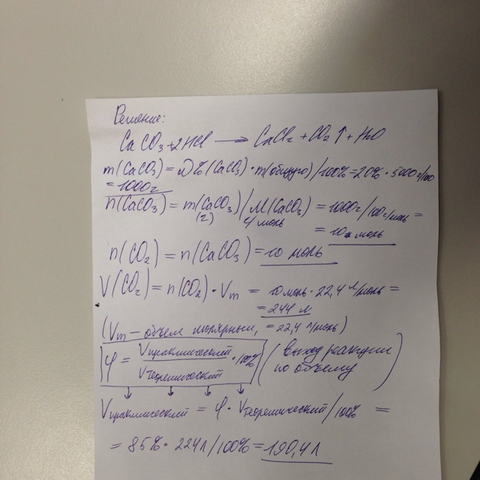 Решение:
CaCO3 + 2HCl → CaCl2 + CO2 ↑ + H2O
m(CaCO3) = ω%(CaCO3) · m(общую)/100% = 20% · 5000г/100
= 1000г
n(CaCO3) = m(CaCO3)/M(CaCO3) = 1000г/100г/моль =
(г) г/моль = 10 моль
n(CO2) = n(CaCO3) = 10 моль
V(CO2) = n(CO2) · Vm = 10моль · 22,4 л/моль =
= 244 л
(Vm — объем молярный, = 22,4 л/моль)
φ = Vпрактический/Vтеоретический · 100% (выход реакции
по объему)
Vпрактический = φ · Vтеоретический/100% =
= 85% · 224л/100% = 190,4л